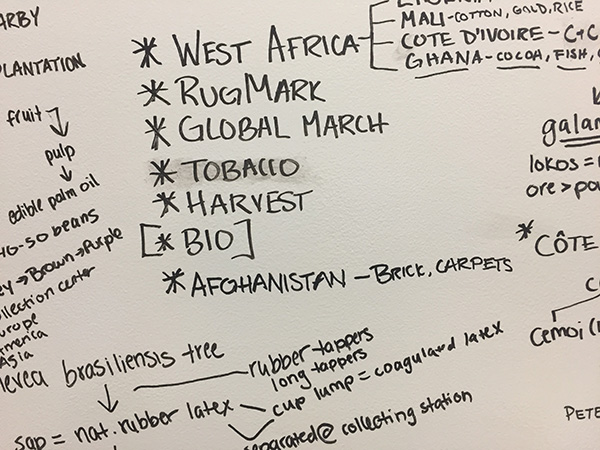 ARBY
LANTATION
fruit
pulp
edible palm oil
40-50 beans
ey → Brown → Purple
llection center
urope
merica
Asia
* WEST AFRICA
MALI - COTTON, GOLD, RICE
COTE D'IVOIRE - C+C
GHANA - COCOA, FISH,
* RUGMARK
* GLOBAL MARCH
* TOBACCO
* HARVEST
[* BIO]
* AFGHANISTAN - BRICK, CARPETS
galam
lokos =
ore > po
* CÔTE
Cemoi (
PETE
evea brasiliensis tree
rubber-tappers
long tappers
cup lump = coagulated latex
sap = nat. rubber latex
separated @ collecting station